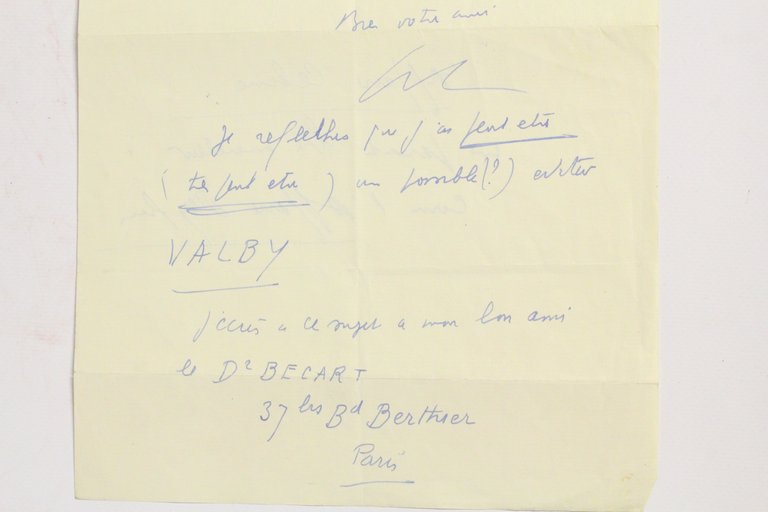 Bien votre ami
Je reflechis que j'ai peut etre
(tres peut etre) un possible (?) editeur
VALBY
j'ecris a ce sujet a mon bon ami
le Dr BECART
37 bis Bd Berthier
Paris